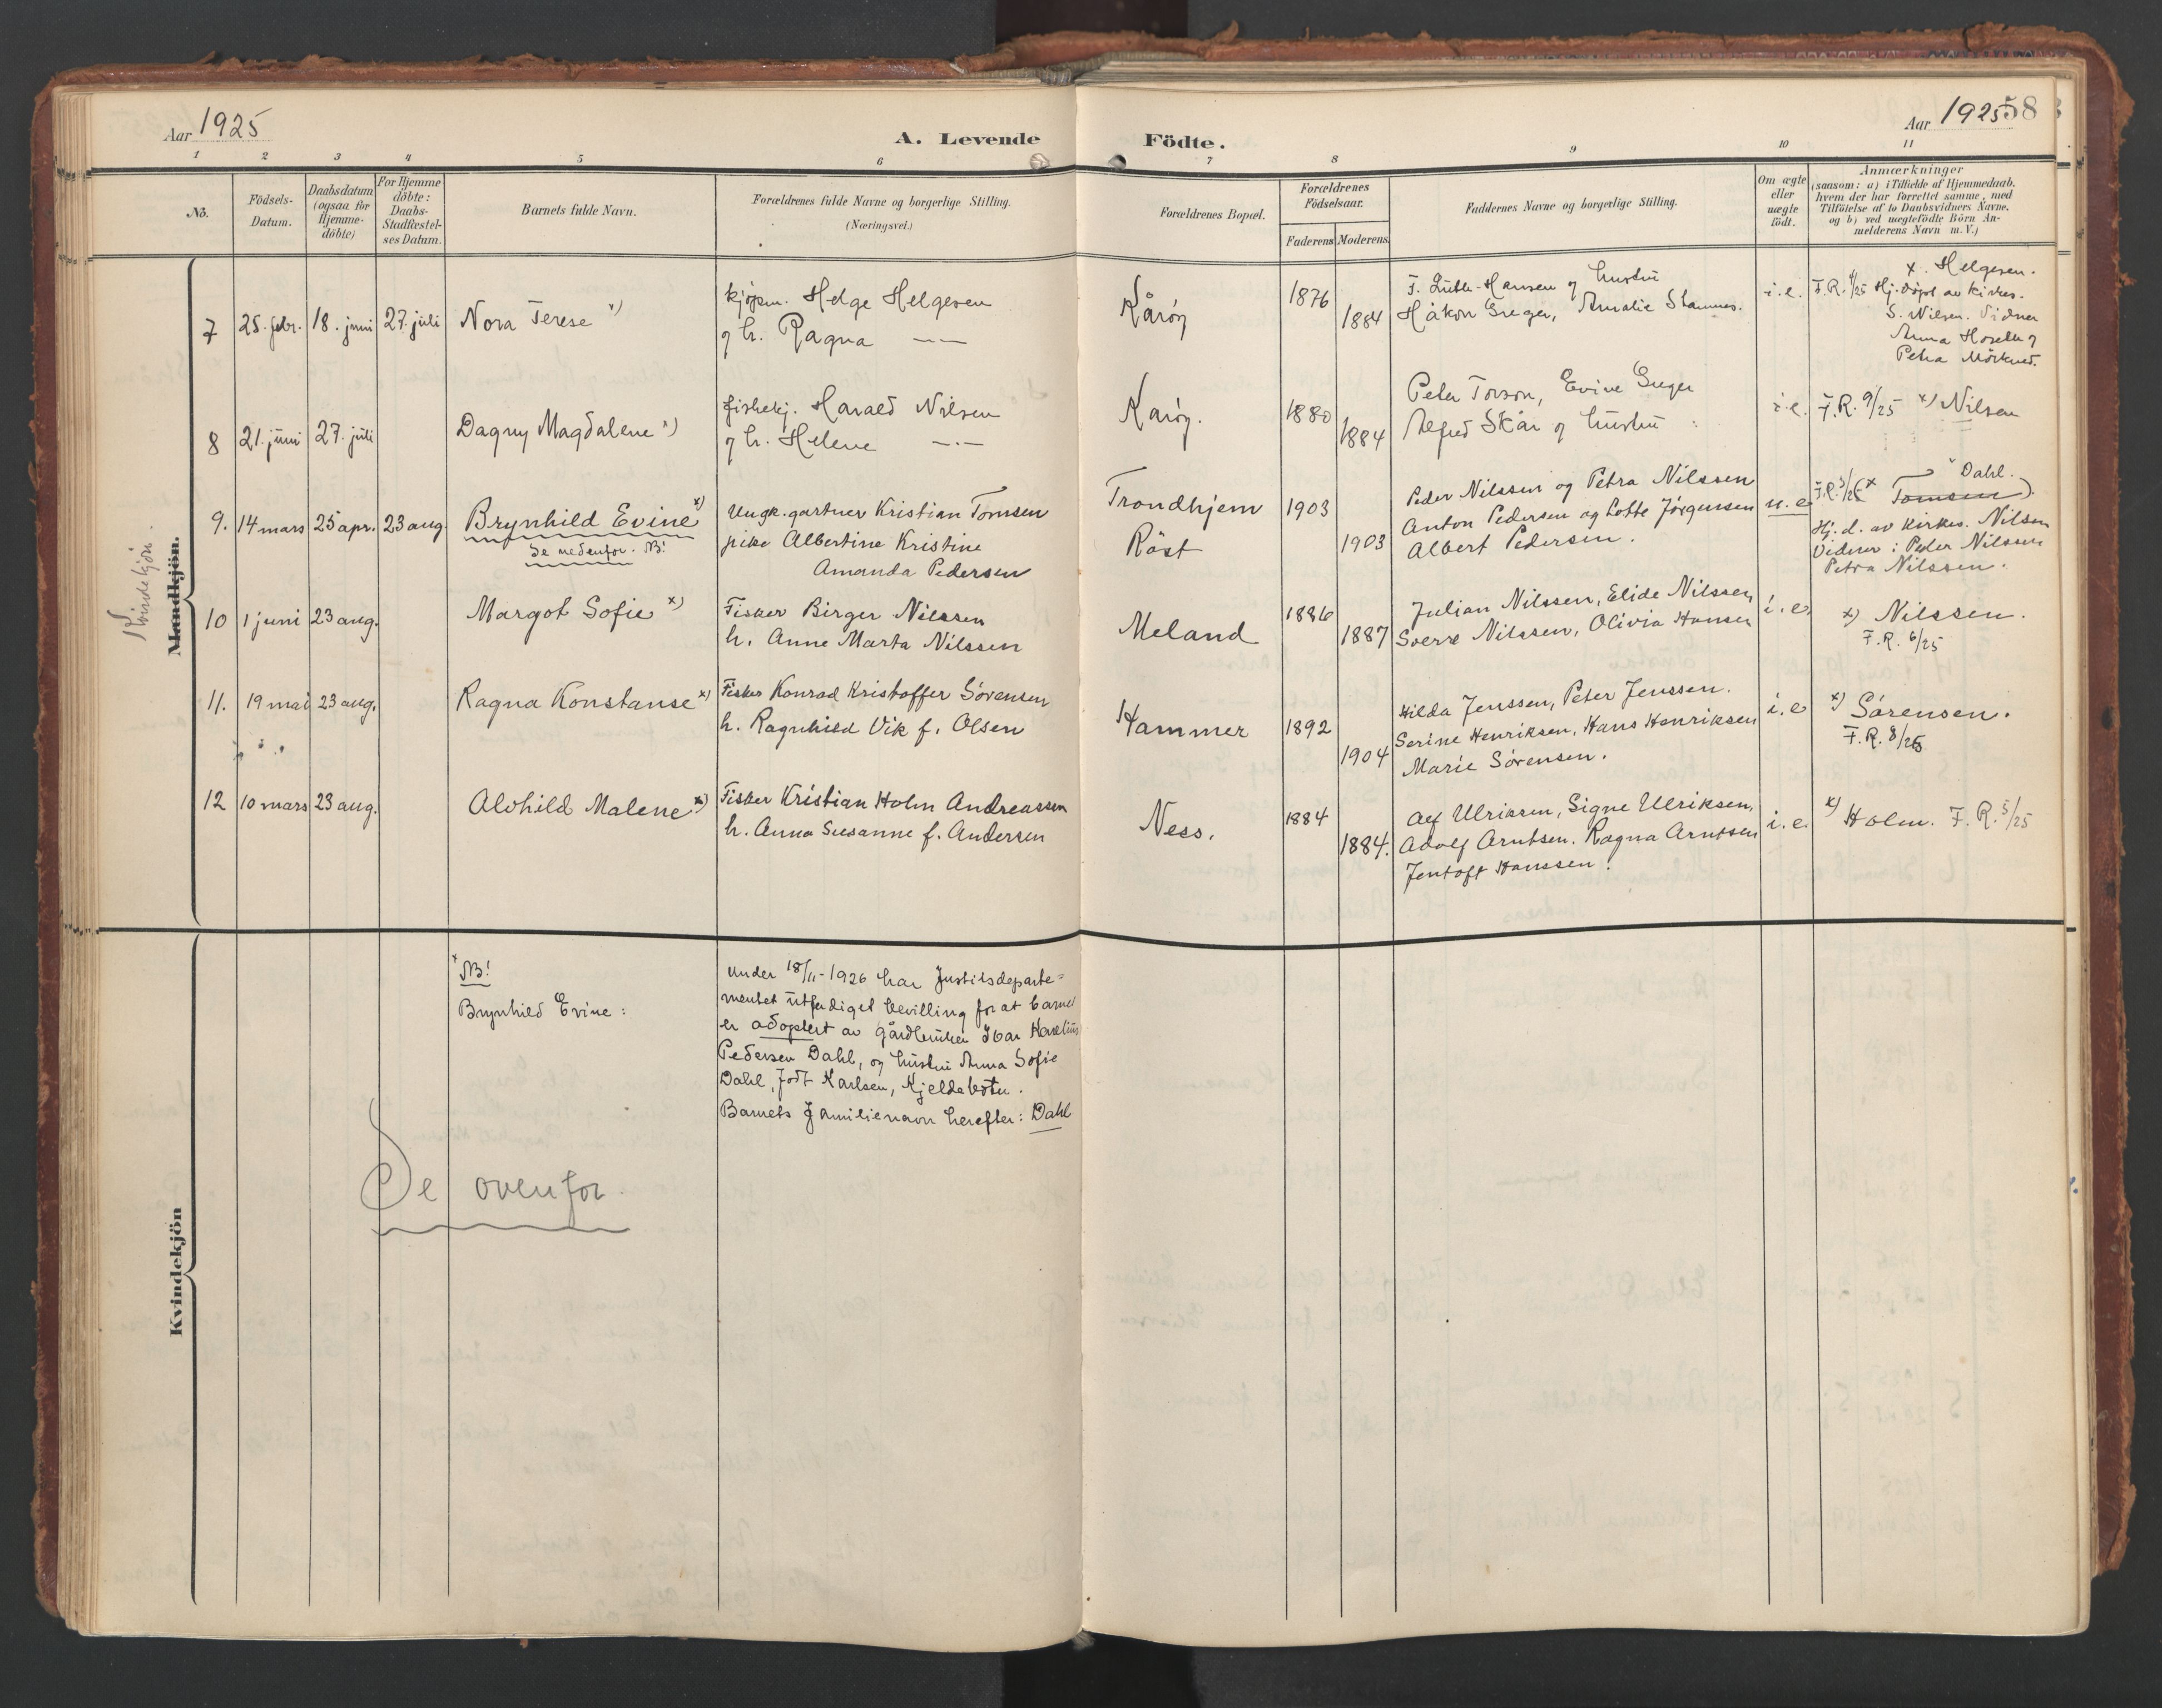 Aar 1925
A. Levende
Födte.
Aar 1925
58
1 2 3 4 5 6 7 8 9 10 11
Nö.
Födsels-
Datum.
Daabsdatum
(ogsaa for
Hjemme-
döbte)
For Hjemme
döbte:
Daabs-
Stadfæstel-
ses Datum.
Barnets fulde Navn.
Forældrenes fulde Navne og borgerlige Stilling.
(Næringsvei.)
Forældrenes Bopæl.
Forældrenes
Födselsaar.
Faderens
Moderens
Faddernes Navne og borgerlige Stilling.
Om ægte
eller
uægte
födt.
Anmærkninger
(saasom: a) i Tilfælde af Hjemmedaab,
hvem der har forrettet samme, med
Tilföielse af to Daabsvidners Navne,
og b) ved uægtefödte Börn An-
melderens Navn m. V.)
Kvindekjön.
Mandkjön.
7
25. febr.
18. juni
27. juli
Nora Terese x)
kjöpm. Helge Helgesen
og h. Ragna — —
Kåröy
1876
1884
F. Luth-Hansen og hustru
Håkon Greger, Amalie Stamnes.
i.e.
x. Helgesen.
F.R. 4/25 Hj. döpt av kirkes.
S. Nilsen. Vidner
Anna Hoseth og
Petra Mörkved.
8
21. juni
27. juli
Dagny Magdalene x)
fiskekj. Harald Nilsen
og h. Helene —·—
Karöy.
1880
1884
Peter Torson, Evine Greger
Alfred Skår og hustru
i.e.
F.R. 9/25 x) Nilsen
9.
14 mars
25 apr.
23 aug.
Brynhild Evine x)
Se nedenfor. NB!
Ungk. gartner Kristian Tomsen
pike Albertine Kristine
Amanda Pedersen
Trondhjem
Röst
1903
1903
Peder Nilssen og Petra Nilssen
Anton Pedersen og Lotte Jörgensen
Albert Pedersen.
u.e
Dahl.
F.R. 3/26 (x Tomsen).
Hj. d. av kirkes. Nilsen
Vidner: Peder Nilssen
Petra Nilssen.
10
1 juni
23 aug.
Margot Sofie x)
Fisker Birger Nilssen
h. Anne Marta Nilssen
Meland
1886
1887
Julian Nilssen, Elide Nilssen
Sverre Nilssen, Olivia Hansen
i.e.
x) Nilssen.
F.R. 6/25
11.
19 mai
23 aug.
Ragna Konstanse x)
Fisker Konrad Kristoffer Sörensen
h. Ragnhild Vik f. Olsen
Hammer
1892
1904
Hilda Jenssen, Peter Jenssen.
Serine Henriksen, Hans Henriksen
Marie Sörensen.
i.e
x) Sörensen.
F.R. 8/25
12
10 mars
23 aug.
Alvhild Malene x)
Fisker Kristian Holm Andreassen
h. Anna Susanne f. Andersen
Ness.
1884
1884.
Alf Ulriksen, Signe Ulriksen,
Adolf Arntsen. Ragna Arntsen
Jentoft Hanssen.
i.e.
x) Holm. F.R. 5/25
Kvindekjön
x NB!
Brynhild Evine:
Under 18/11-1926 har Justitsdeparte-
mentet utferdiget bevilling for at barnet
er adoptert av gårdbruker Ivar
Pedersen Dahl, og hustru Anna Sofie
Dahl, født Karlsen, Kjeldebotn.
Barnets familienavn herefter: Dahl
Se ovenfor.